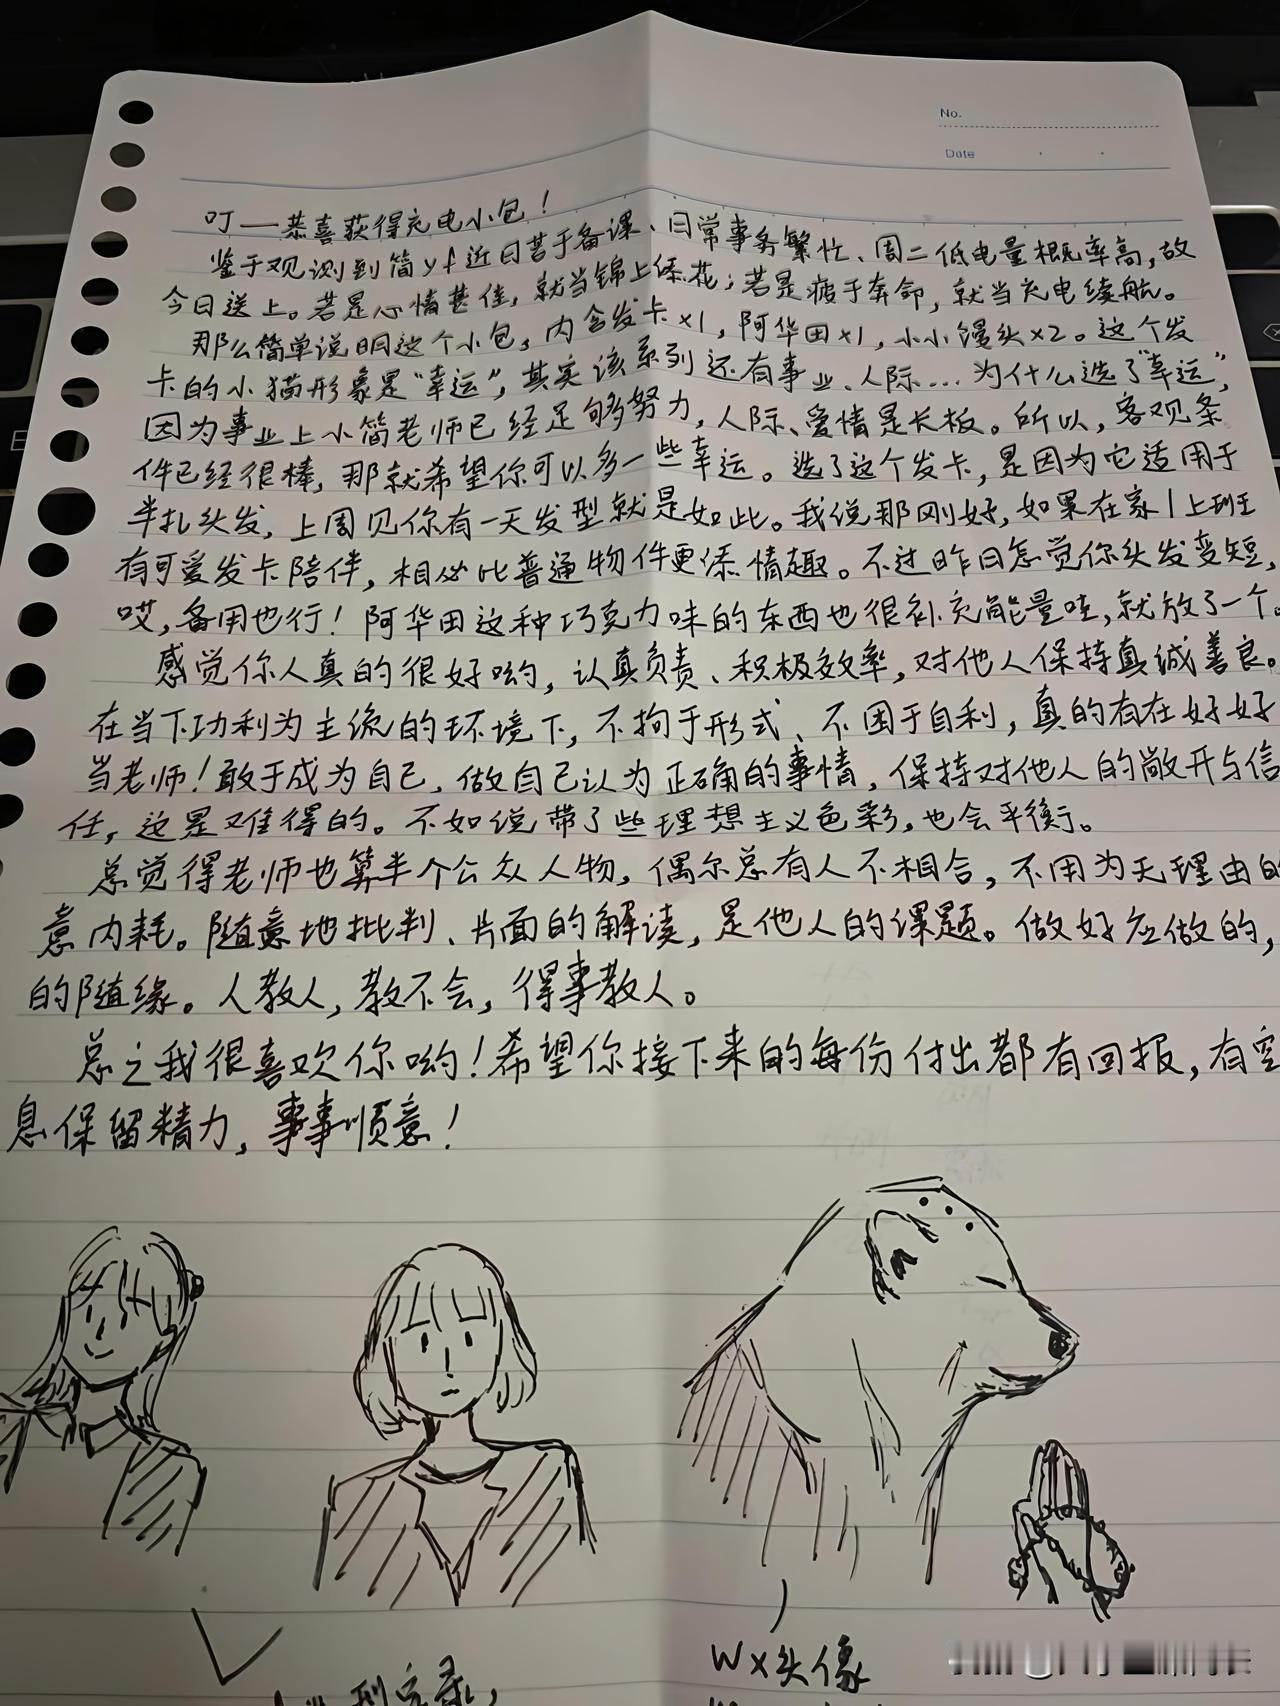 No.
Date
叮——恭喜获得充电小包！
鉴于观测到简yf近日苦于备课、日常事务繁忙、周二低电量概率高，故
今日送上。若是心情甚佳，就当锦上添花；若是疲于奔命，就当充电续航。
那么简单说明这个小包，内含发卡x1，阿华田x1，小小馒头x2。这个发
卡的小猫形象是“幸运”，其实该系列还有事业、人际…为什么选了“幸运”，
因为事业上小简老师已经足够努力，人际、爱情是长板。所以，客观条
件已经很棒，那就希望你可以多一些幸运。选了这个发卡，是因为它适用于
半扎头发，上周见你有一天发型就是如此。我说那刚好，如果在家|上班
有可爱发卡陪伴，相必比普通物件更添情趣。不过昨日怎觉你头发变短，
哎，备用也行！阿华田这种巧克力味的东西也很补充能量哇，就放了一个。
感觉你人真的很好哟，认真负责、积极效率，对他人保持真诚善良。
在当下功利为主流的环境下，不拘于形式、不困于自利，真的有在好好
当老师！敢于成为自己，做自己认为正确的事情，保持对他人的敞开与信
任，这是难得的。不如说带了些理想主义色彩，也会平衡。
总觉得老师也算半个公众人物，偶尔总有人不相合，不用为无理由的
意内耗。随意地批判、片面的解读，是他人的课题。做好应做的，
的随缘。人教人，教不会，得事教人。
总之我很喜欢你哟！希望你接下来的每份付出都有回报，有空
息保留精力，事事顺意！
WX头像